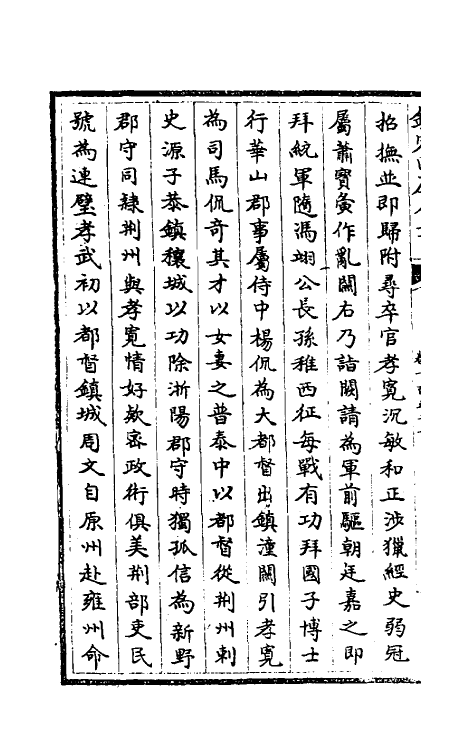 招撫並即歸附尋卒官孝寛沉敏和正涉獵經史弱冠
屬蕭寳夤作亂關右乃詣闕請為軍前驅朝廷嘉之即
拜統軍隨馮翊公長孫稚西征每戰有功拜國子博士
行華山郡事屬侍中楊侃為大都督出鎮潼關引孝寛
為司馬侃奇其才以女妻之普泰中以都督從荆州刺
史源子恭鎮穰城以功除淅陽郡守時獨孤信為新野
郡守同隷荆州與孝寛情好欵宻政術俱美荆部吏民
號為連璧孝武初以都督鎮城周文自原州赴雍州命